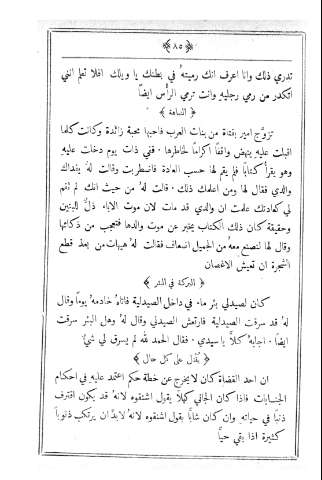 ﴿ ٨٥ ﴾
تدري ذلك وانا اعرف انك رميتهُ في بطنك يا ويلك افلا تعلم انني
اتكدر من رمي رجليهِ وانت ترمي الرأس ايضًا
﴿ النباهة ﴾
تزوَّج امير بفتاة من بنات العرب فاحبها محبة زائدة وكانت كلما
اقبلت عليهِ ينهض واقفًا اكرامًا لخاطرها . ففي ذات يوم دخلت عليهِ
وهو يقرأ كتابًا فلم يقم لها حسب العادة فاضطربت وقالت لهُ يفداك
والدي فقال لها ومن اعلمك ذلك . قالت لهُ من حيث انك لم تقم
لي كعادتك علمت ان والدي قد مات لان موت الاباء ذلٌّ للبنين
وحقيقة كان ذلك الكتاب يخبر عن موت والدها فتعجب من ذكائها
وقال لها لنصنع معهُ من الجميل اضعاف فقالت لهُ هيهات من بعد قطع
الشجرة ان تعيش الاغصان
﴿ البركة في البئر ﴾
كان لصيدلي بئر ماء في داخل الصيدلية فاتاهُ خادمهُ يومًا وقال
لهُ قد سرقت الصيدلية فارتعش الصيدلي وقال لهُ وهل البئر سرقت
ايضًا . اجابهُ كلَّا يا سيدي . فقال الحمد لله لم يسرق لي شيءٌ
﴿ يُقتل على كل حال ﴾
ان احد القضاة كان لا يخرج عن خطة حكم اعتمد عليهِ في احكام
الجنايات فاذا كان الجاني كهلًا يقول اشنقوه لانهُ قد يكون اقترف
ذنبًا في حياتهِ وان كان شابًّا يقول اشنقوه لانهُ لابدَّ ان يرتكب ذنوبًا
كثيرة اذا بقي حيًّا